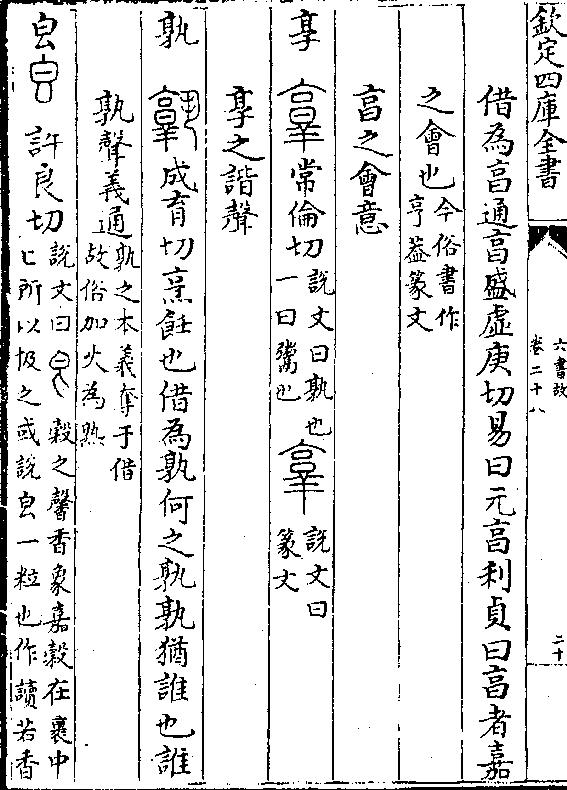 欽定四庫全書
六書故
卷二十八
二十
借為亯通亯盛虛庚切易曰元亯利貞曰亯者嘉
之會也今俗書作
亨葢篆文
亯之會意
𦎫常倫切說文曰孰也
一曰鬻也說文曰
篆文
𦎫之諧聲
孰成育切烹飪也借為孰何之孰孰猶誰也誰
孰聲義通孰之本義奪于借
故俗加火為熟
皀許良切說文曰穀之馨香象嘉穀在裹中
匕所以扱之或說皀一粒也作讀若香